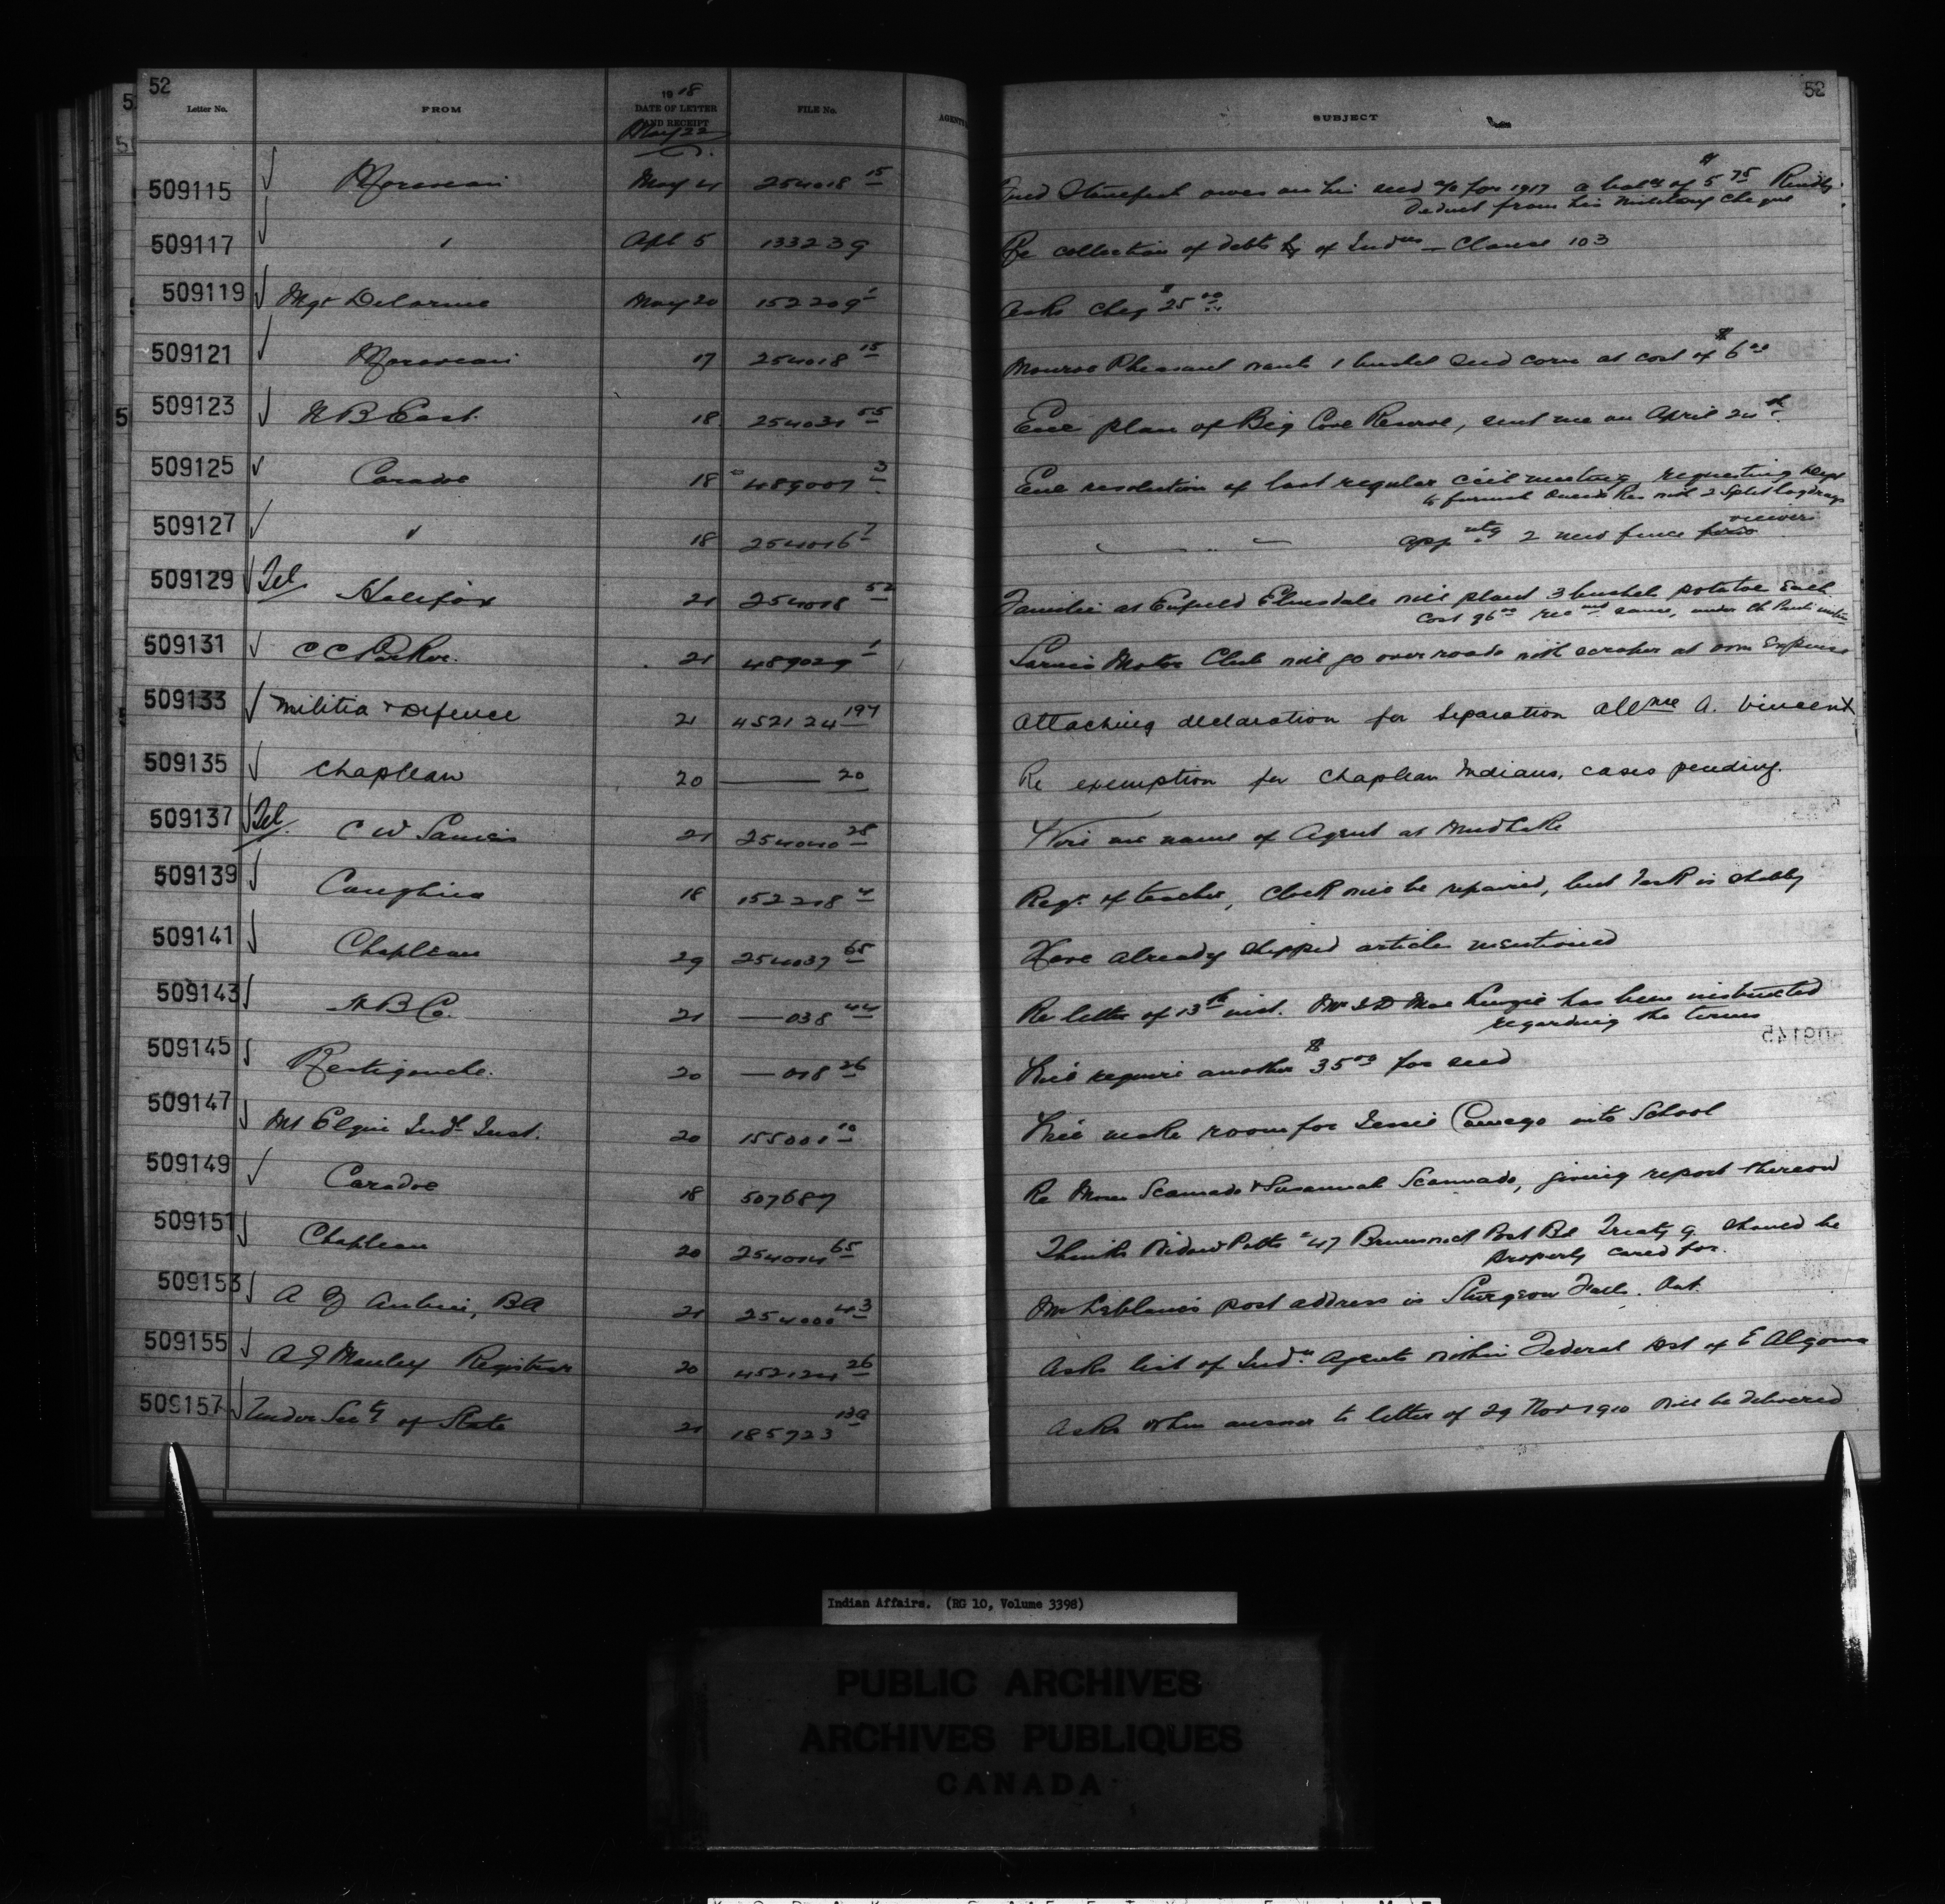 52
52
Letter No. FROM 1918 DATE OF LETTER AND RECEIPT FILE No. AGENTS SUBJECT
May 22
509115 Moravian May 21 254018 15 owes on his seed a/c for 1917 a balce of $5 75 Kindly
deduct from his military cheque
509117 " Apl 5 133239 Re collection of debts by of Indns — Clause 103
509119 Mgr Delorme May 20 152209 1 Asks cheq $25 00
509121 Moravian 17 254018 15 Monroe Pheasant wants 1 bushel seed corn at cost of $6 00
509123 N B East. 18 254031 55 Enc plan of Big Cove Reserve, sent me on April 24th
509125 Caradoc 18 489007 3 Enc resolution of last regular ccil meeting requesting Dept
to furnish Oneida Res with 2 split log drags
509127 " 18 254016 7 " " " appntg 2 new fence viewers
509129 Tel Halifax 21 254018 52 Families at Enfield Elmsdale will plant 3 bushel potatoe each
cost 96 00 recmnd same, under
509131 C C Parker. 21 489029 1 Sarnia Motor Club will go over roads with scraper at own expense
509133 Militia & Defence 21 452124 197 Attaching declaration for separation allnce A. Vincent
509135 Chapleau 20 — 20 Re exemption for Chapleau Indians, cases pending.
509137 Tel. C W 21 254040 28 Wire me name of Agent at Mud Lake
509139 18 152218 4 Regr of teacher, clock will be repaired, but task is shabby
509141 Chapleau 29 254037 65 Have already shipped article mentioned
509143 H B Co. 21 —038 44 Re letter of 13th inst. Mr MacKenzie has been instructed
regarding the terms
509145
509145 Restigouche. 20 —018 26 Will require another $35 00 for seed
509147 Mt Elgin Indl Inst. 20 155001 10 Will make room for Jessie Comego into School
509149 Caradoc 18 507687 Re Moses Scannado & Susannah Scannado, giving report thereon
509151 Chapleau 20 254014 65 Thinks Widow Potts #47 Brunswick Post Bd Treaty 9 should be
properly cared for.
509153 A J Aubin, BA 21 254000 43 Mr Leblanc's post address is Sturgeon Falls. Ont.
509155 A J Manley Registrar 20 452124 26 Asks list of Indn Agents within Federal Dist of E Algoma
509157 Under Secty of State 21 185723 13a Asks when answer to letter of 29 Nov 1910 will be delivered
Indian Affairs. (RG 10, Volume 3398)
PUBLIC ARCHIVES
ARCHIVES PUBLIQUES
CANADA